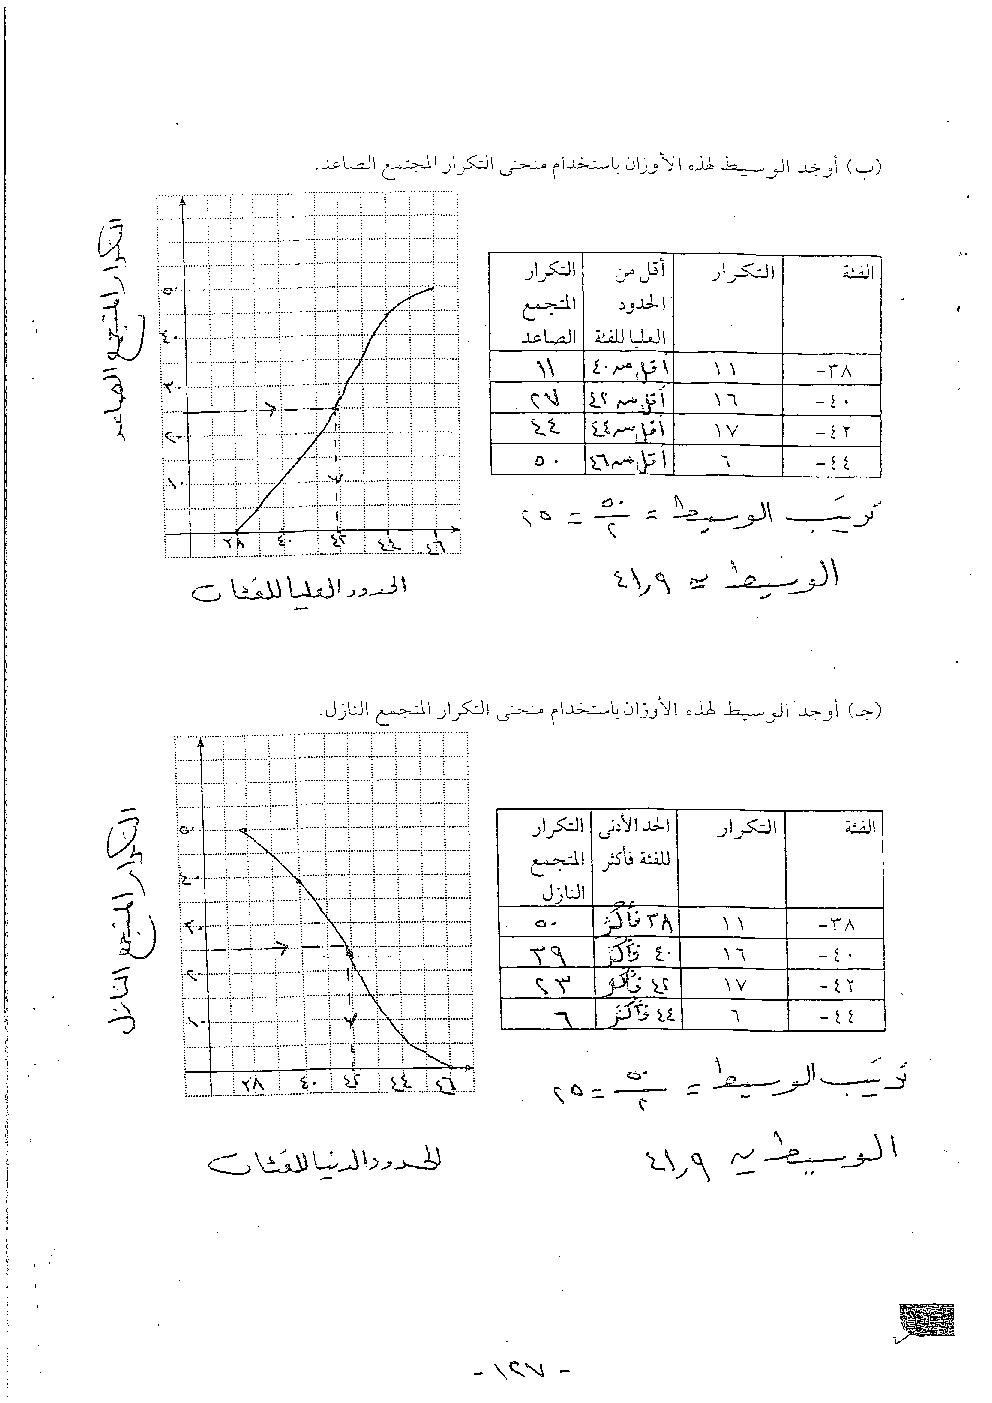 (ب) أوجد الوسيط لهذه الأوزان باستخدام منحنى التكرار المجتمع الصاعد.
الفئة التكرار أقل من الحدود العليا للفئة التكرار المتجمع الصاعد
٣٨- ١١ أقل من ٤٠ ١١
٤٠- ١٦ أقل من ٤٢ ٢٧
٤٢- ١٧ أقل من ٤٤ ٤٤
٤٤- ٦ أقل من ٤٦ ٥٠
التكرار المتجمع الصاعد
٥٠
٤٠
٣٠
٢٠
١٠
٣٨ ٤٠ ٤٢ ٤٤ ٤٦
الحدود العليا للفئات
ترتيب الوسيط = ٥٠/٢ = ٢٥
الوسيط ≃ ٤١,٩
(جـ) أوجد الوسيط لهذه الأوزان باستخدام منحنى التكرار المتجمع النازل.
الفئة التكرار الحد الأدنى للفئة فأكثر التكرار المتجمع النازل
٣٨- ١١ ٣٨ فأكثر ٥٠
٤٠- ١٦ ٤٠ فأكثر ٣٩
٤٢- ١٧ ٤٢ فأكثر ٢٣
٤٤- ٦ ٤٤ فأكثر ٦
التكرار المتجمع النازل
٥٠
٤٠
٣٠
٢٠
١٠
٣٨ ٤٠ ٤٢ ٤٤ ٤٦
الحدود الدنيا للفئات
ترتيب الوسيط = ٥٠/٢ = ٢٥
الوسيط ≃ ٤١,٩
- ١٢٧ -